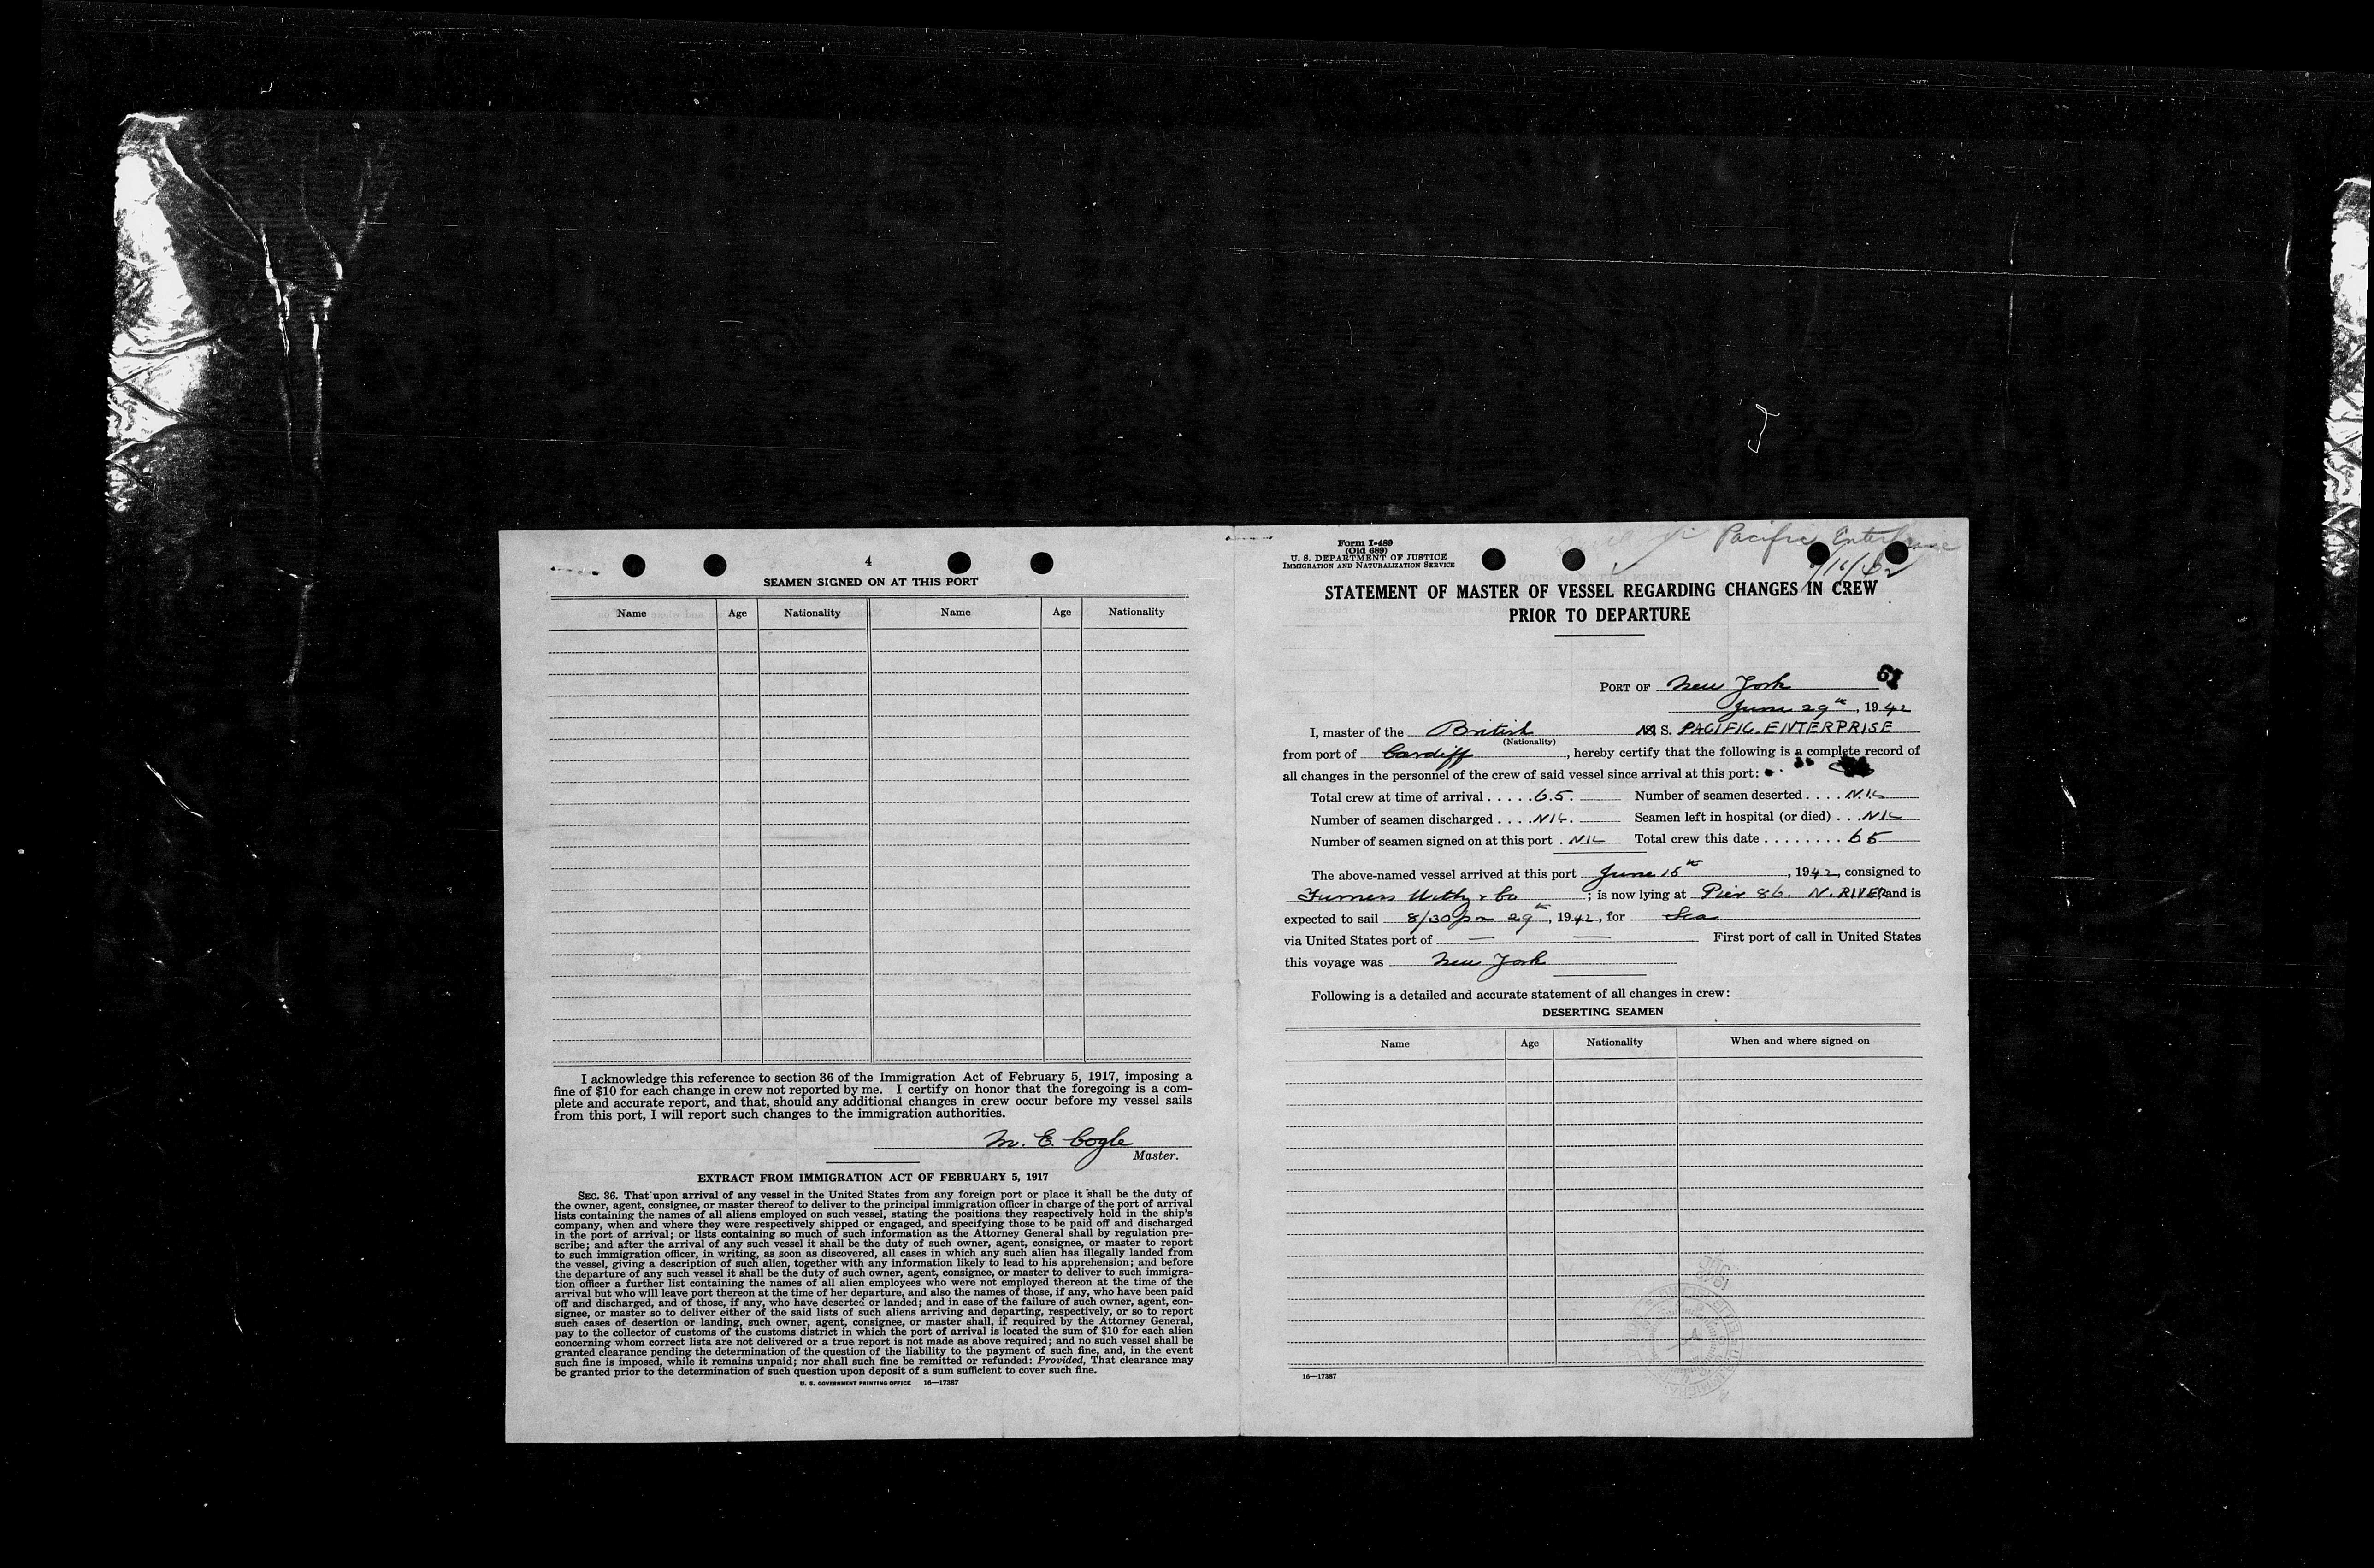 4
SEAMEN SIGNED ON AT THIS PORT
Name Age Nationality Name Age Nationality
I acknowledge this reference to section 36 of the Immigration Act of February 5, 1917, imposing a
fine of $10 for each change in crew not reported by me. I certify on honor that the foregoing is a com-
plete and accurate report, and that, should any additional changes in crew occur before my vessel sails
from this port, I will report such changes to the immigration authorities.
M. E. Cogle
Master.
EXTRACT FROM IMMIGRATION ACT OF FEBRUARY 5, 1917
SEC. 36. That upon arrival of any vessel in the United States from any foreign port or place it shall be the duty of
the owner, agent, consignee, or master thereof to deliver to the principal immigration officer in charge of the port of arrival
lists containing the names of all aliens employed on such vessel, stating the positions they respectively hold in the ship's
company, when and where they were respectively shipped or engaged, and specifying those to be paid off and discharged
in the port of arrival; or lists containing so much of such information as the Attorney General shall by regulation pre-
scribe; and after the arrival of any such vessel it shall be the duty of such owner, agent, consignee, or master to report
to such immigration officer, in writing, as soon as discovered, all cases in which any such alien has illegally landed from
the vessel, giving a description of such alien, together with any information likely to lead to his apprehension; and before
the departure of any such vessel it shall be the duty of such owner, agent, consignee, or master to deliver to such immigra-
tion officer a further list containing the names of all alien employees who were not employed thereon at the time of the
arrival but who will leave port thereon at the time of her departure, and also the names of those, if any, who have been paid
off and discharged, and of those, if any, who have deserted or landed; and in case of the failure of such owner, agent, con-
signee, or master so to deliver either of the said lists of such aliens arriving and departing, respectively, or so to report
such cases of desertion or landing, such owner, agent, consignee, or master shall, if required by the Attorney General,
pay to the collector of customs of the customs district in which the port of arrival is located the sum of $10 for each alien
concerning whom correct lists are not delivered or a true report is not made as above required; and no such vessel shall be
granted clearance pending the determination of the question of the liability to the payment of such fine, and, in the event
such fine is imposed, while it remains unpaid; nor shall such fine be remitted or refunded: Provided, That clearance may
be granted prior to the determination of such question upon deposit of a sum sufficient to cover such fine.
U. S. GOVERNMENT PRINTING OFFICE 16—17387
Pacific Enterprise
Form I-489
(Old 689)
U. S. DEPARTMENT OF JUSTICE
IMMIGRATION AND NATURALIZATION SERVICE
STATEMENT OF MASTER OF VESSEL REGARDING CHANGES IN CREW
PRIOR TO DEPARTURE
PORT OF New York
June 29th, 1942
I, master of the British S. PACIFIC ENTERPRISE
(Nationality)
from port of Cardiff, hereby certify that the following is a complete record of
all changes in the personnel of the crew of said vessel since arrival at this port:
Total crew at time of arrival ..... 65. Number of seamen deserted .... NIL
Number of seamen discharged .... NIL. Seamen left in hospital (or died) ... NIL
Number of seamen signed on at this port . NIL Total crew this date ........ 65
The above-named vessel arrived at this port June 15th, 1942, consigned to
Furness Withy & Co; is now lying at Pier 86. N. RIVER and is
expected to sail 8/30 pm 29th, 1942, for Sea
via United States port of — — First port of call in United States
this voyage was New York
Following is a detailed and accurate statement of all changes in crew:
DESERTING SEAMEN
Name Age Nationality When and where signed on
16—17387